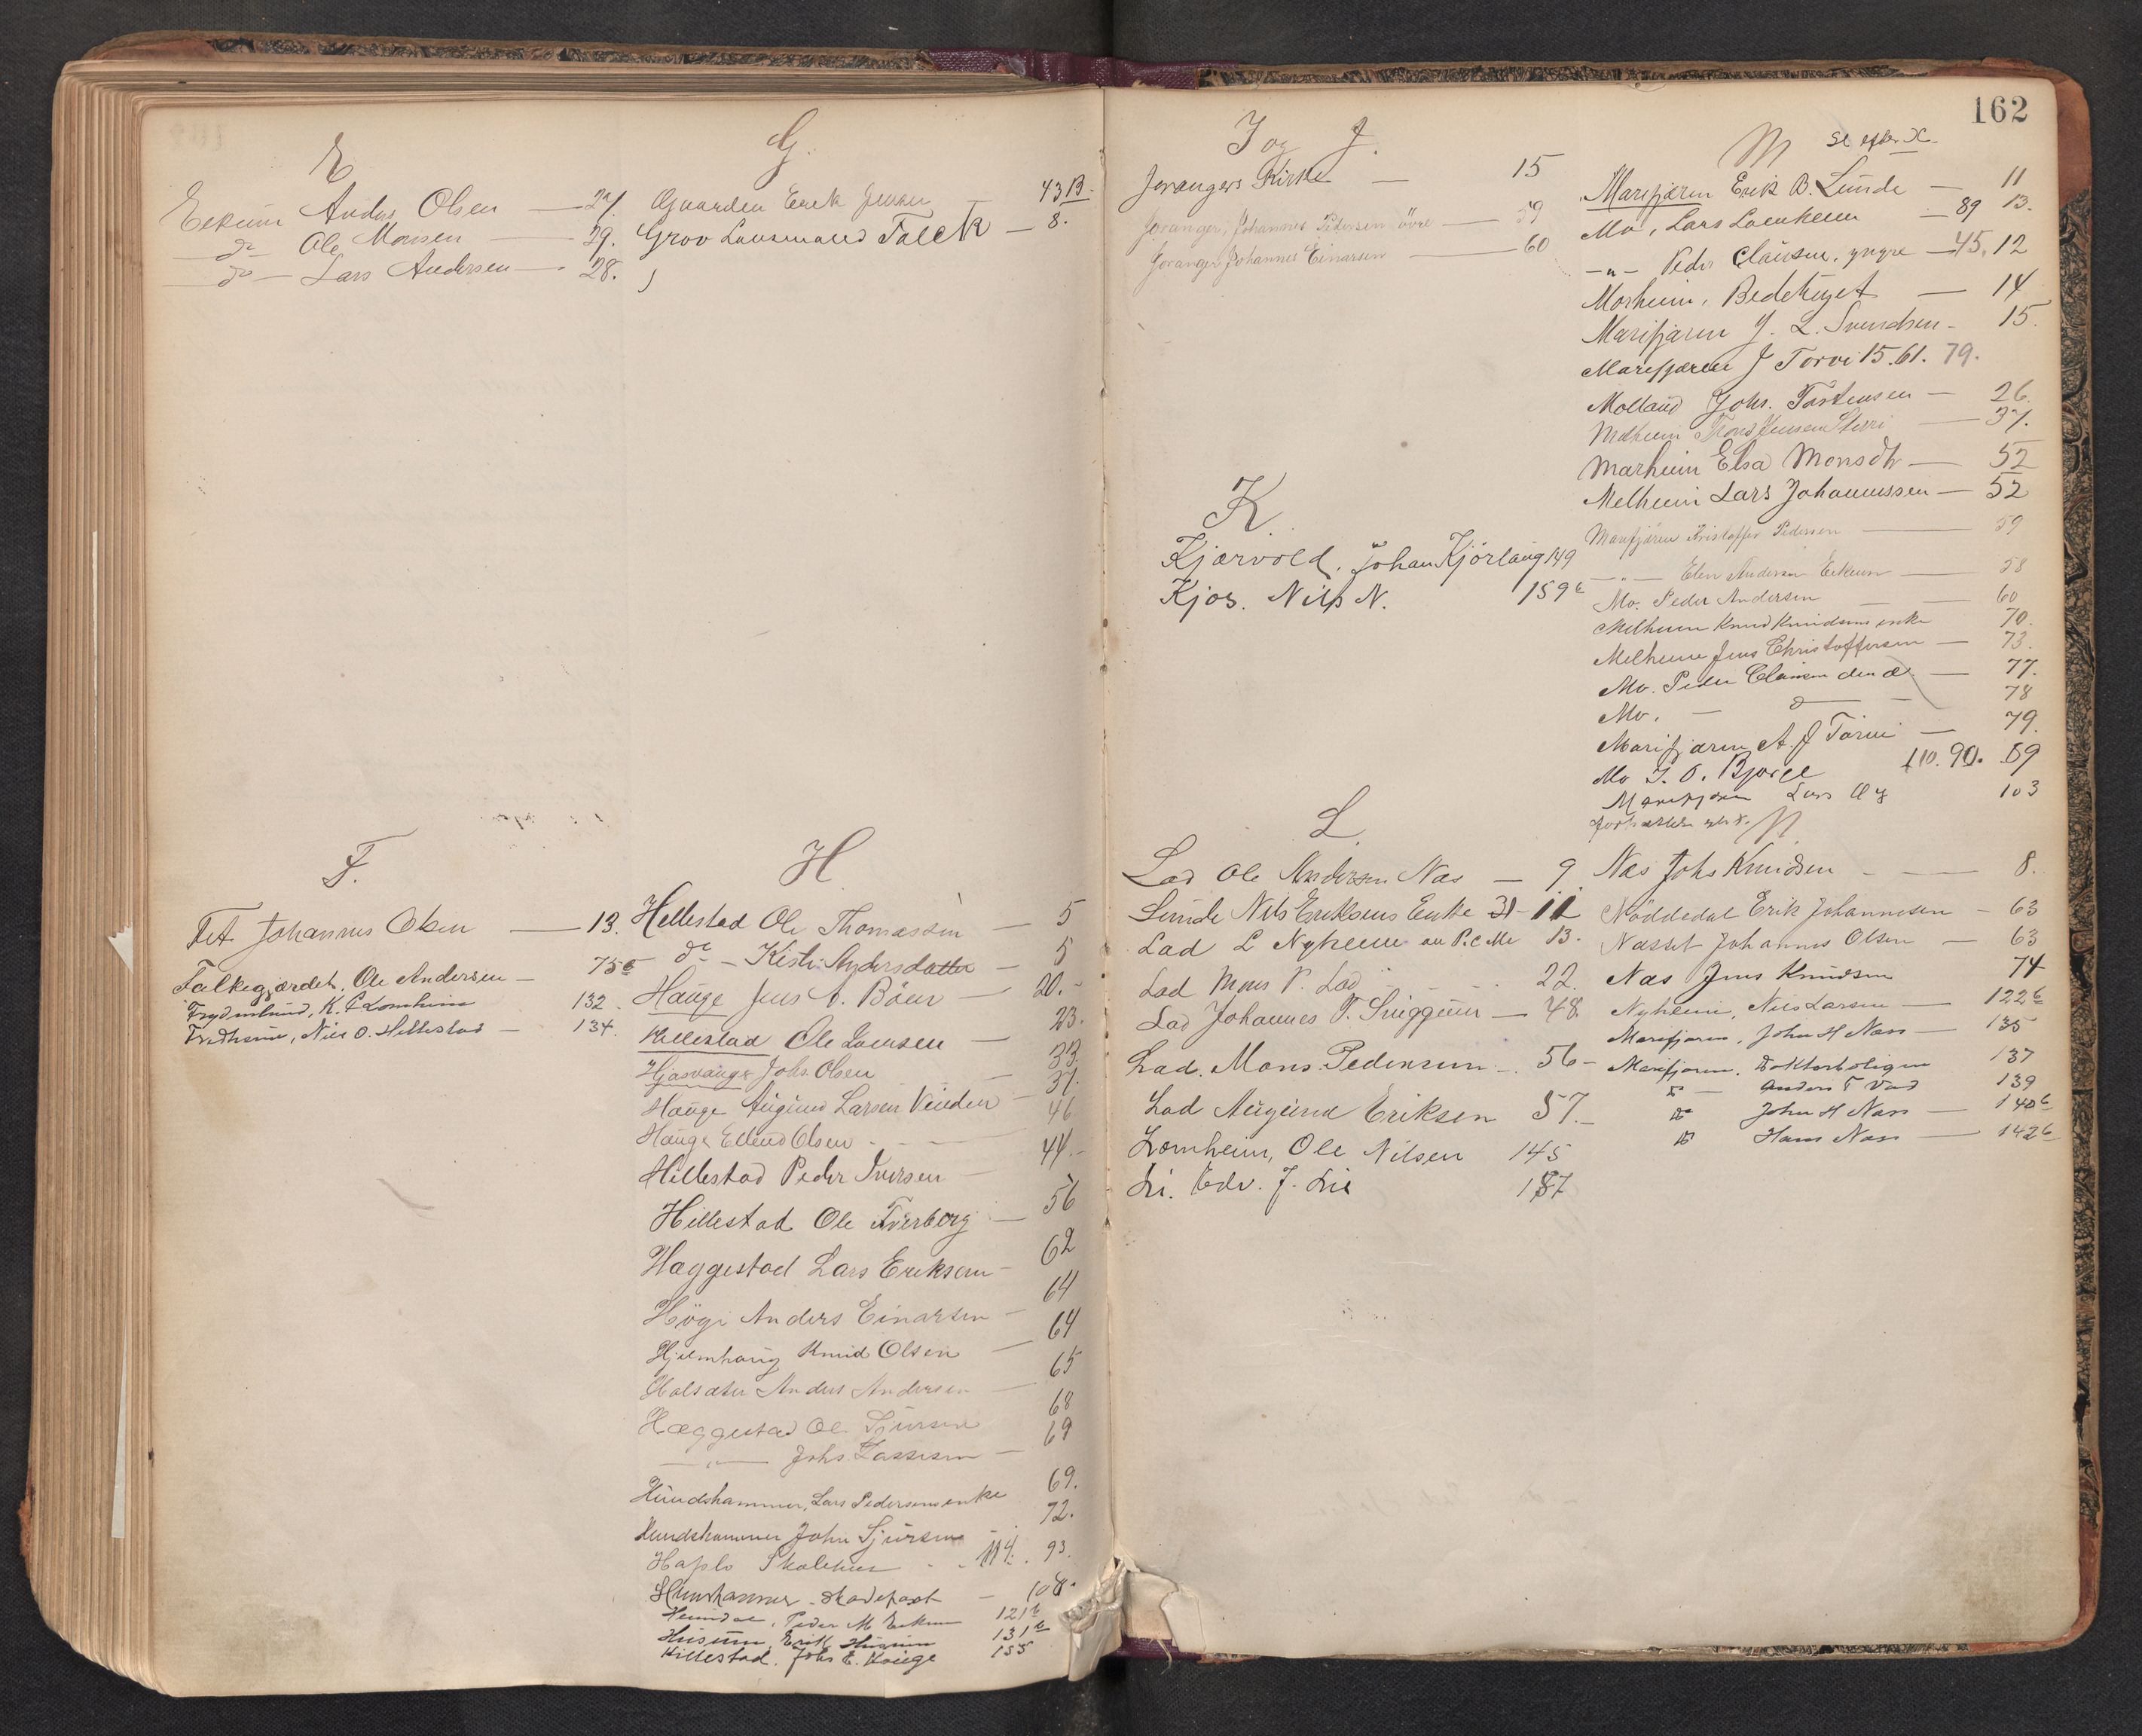 E
Eekum Anders Olsen — 27.
do Ole Monsen — 29.
do — Lars Andersen — 28.
F.
Fet Johannes Olsen — 13.
Falkegjærdet, Ole Andersen — 75b
Frydenlund, K. P. Lomheim 132
Fredheim, Nils O. Hillestad — 134.
G.
Gaarden Erik Jensen 43B.
Grov Lensmand Falck — 8.
H
Hillestad Ole Thomassen — 5
do — Kisti Andersdatter — 5
Hauge Jens A. Böen — 20.-
Hillestad Ole Larsen — 23.
Hjasvange Johs. Olsen — 33.
Hauge Augund Larsen — 37.
Hauge Ellend Olsen - - — 46
Hillestad Peder Iversen — 44.-
Hillestad Ole Tverberg — 56
Hæggestad Lars Eriksen — 62
Högi Anders Einarsen — 64
Hjelmhaug Knud Olsen — 64
Holsæter Anders Andersen — 65
Hæggestad Ole Sjursen 68
— „ — Johs. Lassesen — 69
Hundshammer, Lars Pedersens enke 69.
Hundshammer John Sjursen 72.
Haflo Skolehus - - 114. 93.
Hundhammer - 108.
Heimdal, Peder M Eekum 121b
Husum, Erik Husum 131b
Hillestad. Johs E. Hauge 155
162
I og J.
Jorangers Kirke — 15
Joranger, Johannes Pedersen övre — 59
Joranger Johannes Einarsen — 60
K.
Kjærvold. Johan Kjörlaug 149
Kjos. Nils N. 159b
L
Lad Ole Andersen Næs — 9.
Lunde Nils Eriksens Enke 31 - 11
Lad L Nyheim 13.
Lad Mons P. Lad - - 22.
Lad Johannes T. Snggum — 48
Lad. Mons Pedersen — 56 -
Lad Augund Eriksen 57. -
Lomheim, Ole Nilsen 145
Li. Edv. J. Lie 157
M se efter X.
Marifjæren Erik B. Lunde — 11
Mo, Lars Lomheim — 89 13.
— „ — Peder Clausen, yngre — 45, 12
Morheim, Bedehuset — 14
Marifjæren J. L. Svendsen - 15.
Marifjæren J Torvi 15. 61. 79.
Molland Johs. Torstensen — 26.
Melheim — 37.
Marheim Elsa Monsdtr — 52
Melheim Lars Johannessen — 52
Marifjæren Kristoffer Pedersen — 59
— „ — Elen Andersen Eekum — 58
Mo. Peder Andersen — 60
Melheim Knud Knudsens enke 70.
Melheim Jens Christoffersen — 73.
Mo. Peder Clausen den æ. — 77.
Mo. — do — 78
Marifjæren A. J Torvi — 79.
Mo I. O. Bjørge 110. 90. 59
Marifjæren Lars 103
N
Næs Johs Knudsen - — 8.
Nöddedal Erik Johannesen — 63
Næsset Johannes Olsen — 63
Næs Jens Knudsen 74
Nyheim, Nils Larsen — 122b
Marifjæren, John H Næss — 135
Marifjæren, Doktorboligen 137
do — Anders T Vad 139
do John H Næss — 140b
do Hans Næss — 142b